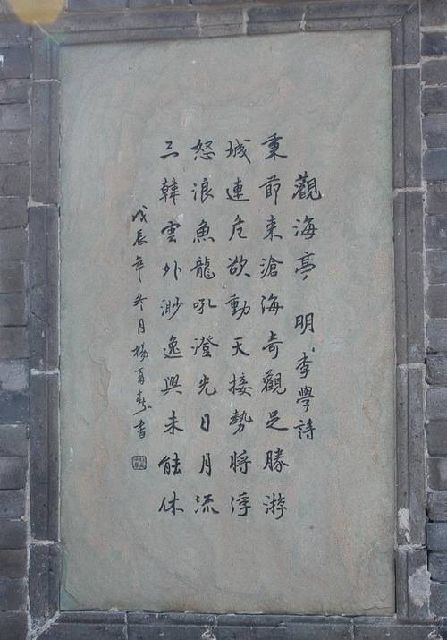 觀海亭 明 李學詩
秉節來滄海奇觀足勝游
城連危欲動天接勢將浮
怒浪魚龍吼澄光日月流
三韓雲外渺逸興未能休
戊辰年冬月楊再春書